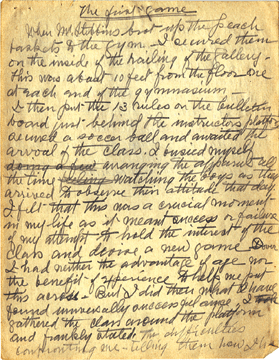 The first Game
When Mr Stebbins brot up the peach
baskets to the gym - I secured them
on the inside of the railing of the gallery -
this was about 10 feet from the floor - one
at each end of the gymnasium -
I then put the 13 rules on the bulletin
board just behind the instructors platform
secured a soccer ball and awaited the
arrival of the class - I busied myself
arranging the apparatus all
the time watching the boys as they
arrived to observe their attitude that day
I felt that this was a crucial moment
in my life as it meant success or failure
of my attempt to hold the interest of the
class and devise a new game
I had neither the advantage of age nor
the benefit of experience to help me put
this across - But I did then what I have
found universally successful since, I
gathered the class around the platform
and frankly stated The difficulties
confronting me - telling them how I